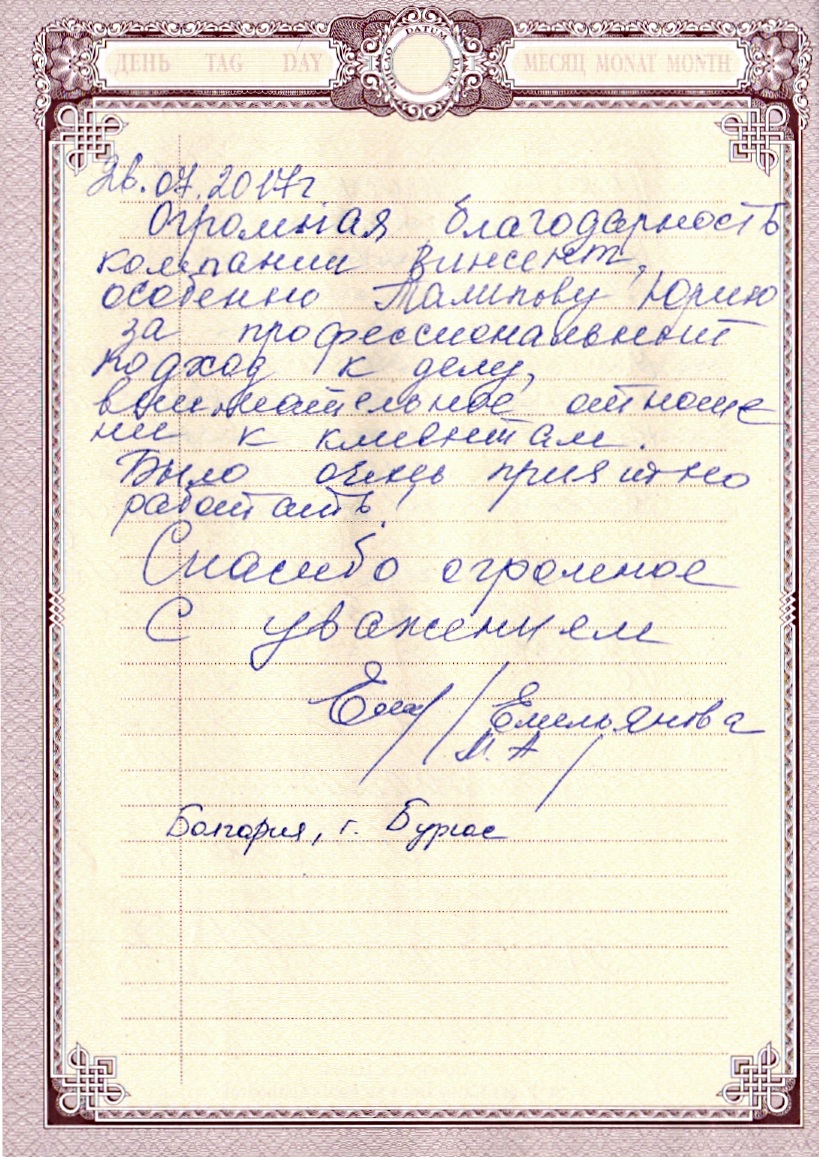 ДЕНЬ TAG DAY ЧИСЛО DATUM DATE МЕСЯЦ MONAT MONTH
26.07.2017г
Огромная благодарность
компании Винсент,
особенно Талипову Юрию
за профессиональный
подход к делу,
внимательное отноше
ние к клиентам.
Было очень приятно
работать!
Спасибо огромное
С уважением
Емельянова
М.А
Болгария, г. Бургас